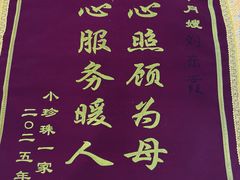 月嫂
心照顾为母
心服务暖人
小珍珠一家
二〇二五年